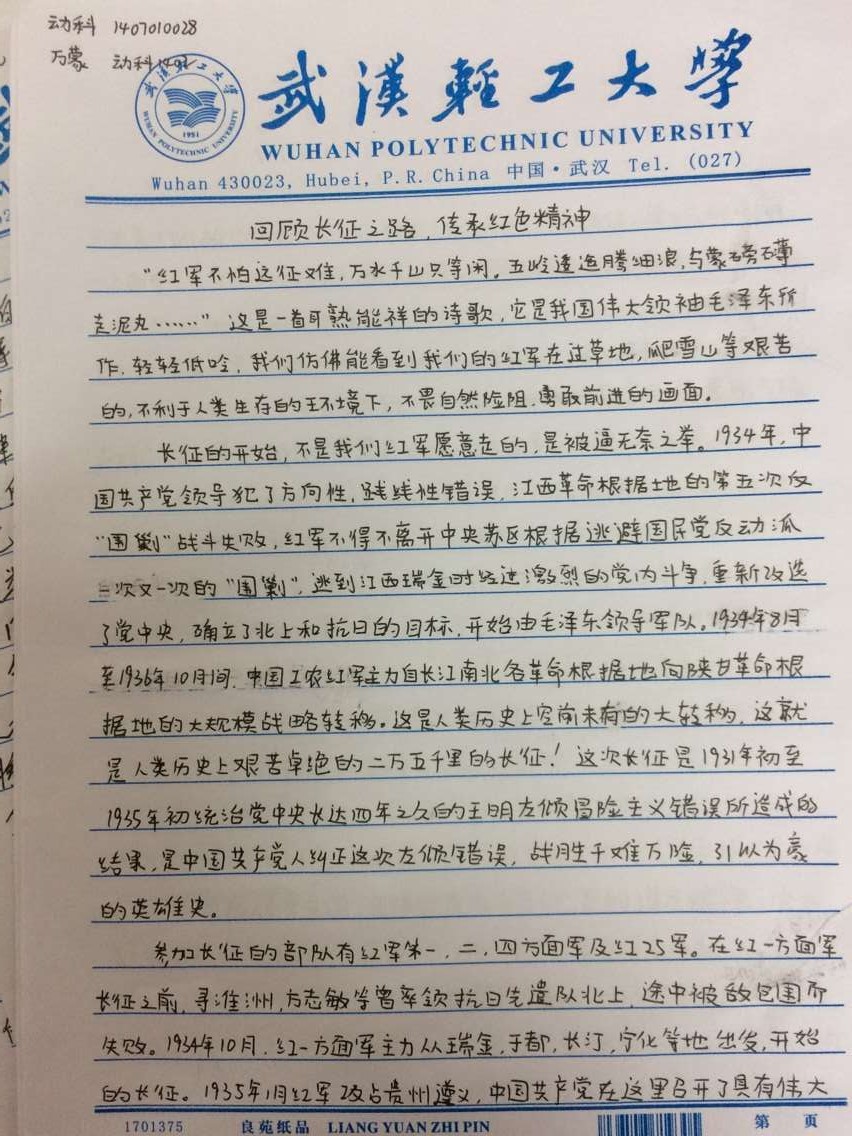 动科 1407010028
万蒙 动科1402
武漢輕工大學
WUHAN POLYTECHNIC UNIVERSITY
1951
WUHAN POLYTECHNIC UNIVERSITY
Wuhan 430023, Hubei, P.R. China 中国·武汉 Tel. (027)
回顾长征之路,传承红色精神
“红军不怕远征难,万水千山只等闲。五岭逶迤腾细浪,乌蒙磅礴
走泥丸……”这是一首耳熟能祥的诗歌,它是我国伟大领袖毛泽东所
作,轻轻低吟,我们仿佛能看到我们的红军在过草地,爬雪山等艰苦
的,不利于人类生存的环境下,不畏自然险阻,勇敢前进的画面。
长征的开始,不是我们红军愿意走的,是被逼无奈之举。1934年,中
国共产党领导犯了方向性,践线性错误,江西革命根据地的第五次反
“围剿”战斗失败,红军不得不离开中央苏区根据逃避国民党反动派
一次又一次的“围剿”,逃到江西瑞金时经过激烈的党内斗争,重新改选
了党中央,确立了北上和抗日的目标,开始由毛泽东领导军队。1934年8月
至1936年10月间,中国工农红军主力自长江南北各革命根据地向陕甘革命根
据地的大规模战略转移。这是人类历史上空前未有的大转移,这就
是人类历史上艰苦卓绝的二万五千里的长征!这次长征是1931年初至
1935年初统治党中央长达四年之久的王明左倾冒险主义错误所造成的
结果,是中国共产党人纠正这次左倾错误,战胜千难万险,引以为豪
的英雄史。
参加长征的部队有红军第一,二,四方面军及红25军。在红一方面军
长征之前,寻淮洲,方志敏等曾率领抗日先遣队北上,途中被敌包围而
失败。1934年10月,红一方面军主力从瑞金,于都,长汀,宁化等地出发,开始
的长征。1935年1月红军攻占贵州遵义,中国共产党在这里召开了具有伟大
1701375 良苑纸品 LIANG YUAN ZHI PIN 第 页